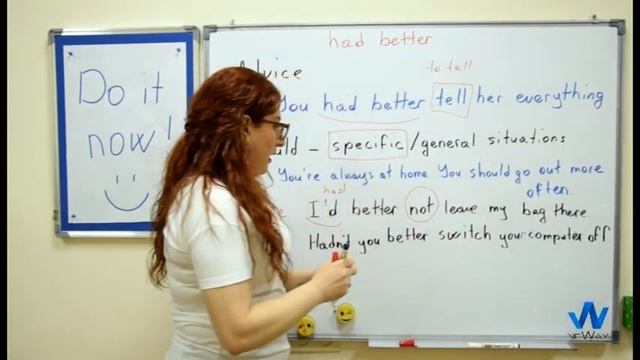 Do it
now!
had better
Advice
to tell
You had better tell her everything
– specific / general situations
You're always at home You should go out more
often.
had
I'd better not leave my bag there
Hadn't you better switch your computer off
NEWAY